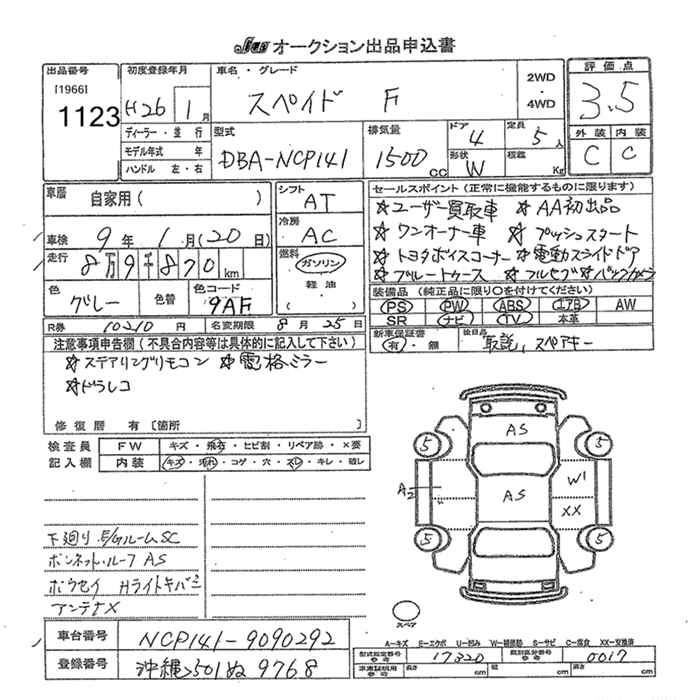 JUS オークション出品申込書
出品番号 初度登録年月 車名・グレード 2WD・4WD 評価点
[1966] 1123 H26 1月 スペイド F 3.5
外装 内装
C C
ディーラー・並行 型式 排気量 ドア 定員
モデル年式 年 DBA-NCP141 1500cc 4 5人
ハンドル 左・右 形状 W 積載 Kg
車歴 自家用( ) シフト AT
セールスポイント(正常に機能するものに限ります)
☆ユーザー買取車 ☆AA初出品
車検 9年1月(20日) 冷房 AC
☆ワンオーナー車 ☆プッシュスタート
走行 8万9千870km 燃料 ガソリン
☆トヨタボイスコーナー ☆電動スライドドア
軽油
( )
☆ブルートゥース ☆フルセグ☆バックカメラ
色 グレー 色替 色コード 9AF
装備品(純正品に限り〇を付けてください)
PS PW ABS エアB AW
SR ナビ TV 本革
R券 10210円 名変期限 8月25日
新車保証書 有・無 後日品 取説、スペアキー
注意事項申告欄(不具合内容等は具体的に記入して下さい)
☆ステアリングリモコン ☆電格ミラー
☆ドラレコ
修復歴 有〔箇所 〕
検査員 FW キズ・飛石・ヒビ割・リペア跡・×要
記入欄 内装 キズ・汚れ・コゲ・穴・スレ・キレ・破レ
AS
5 5
A2 AS W1
XX
5 5
下廻り・E/gルームSC
ボンネット・ルーフAS
ホウセイ Hライトキバミ
アンテナX
スペア
A-キズ E-エクボ U-凹み W-補修跡 S-サビ C-腐食 XX-交換済
車台番号 NCP141-9090292
型式指定番号 参考 17320 類別区分番号 参考 0017
登録番号 沖縄501ぬ9768
冷凍証明用 参考 長さ cm 幅 cm 高さ cm